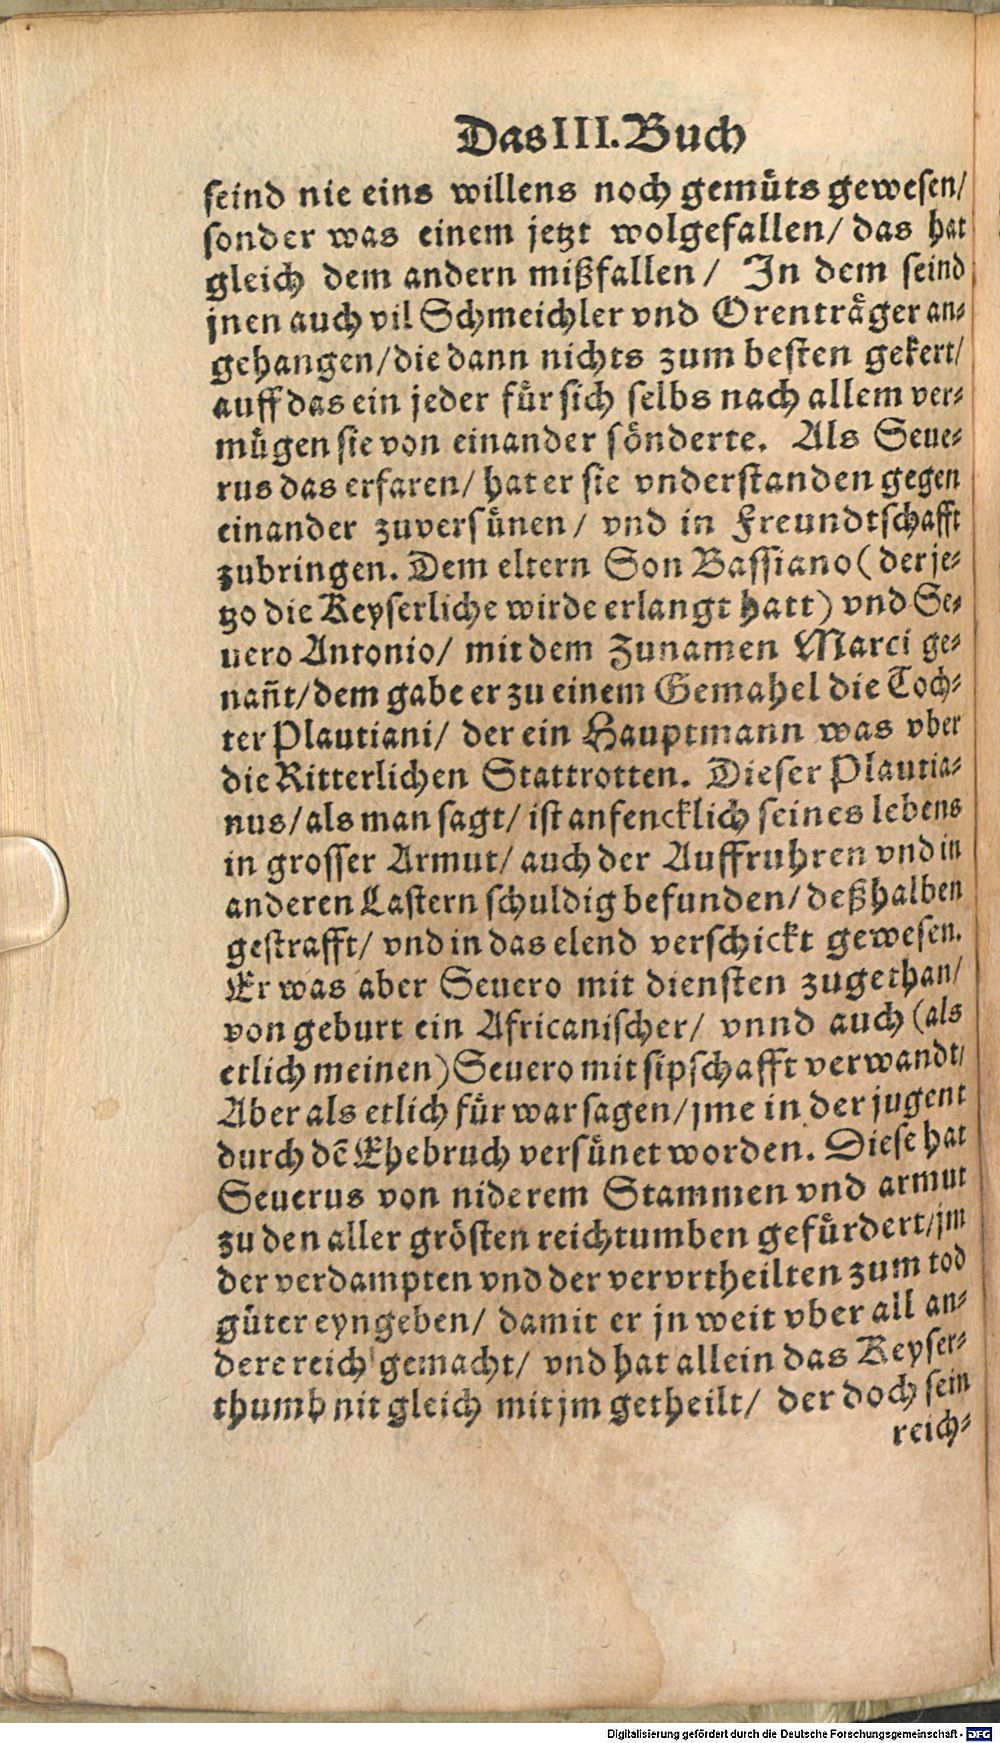 Das III. Buch
seind nie eins willens noch gemuͤts gewesen/
sonder was einem jetzt wolgefallen/ das hat
gleich dem andern mißfallen/ In dem seind
jnen auch vil Schmeichler vnd Orentraͤger an-
gehangen/die dann nichts zum besten gekert/
auff das ein jeder fuͤr sich selbs nach allem ver-
muͤgen sie von einander soͤnderte. Als Seue-
rus das erfaren/ hat er sie vnderstanden gegen
einander zuversuͤnen/ vnd in Freundtschafft
zubringen. Dem eltern Son Bassiano (der je-
tzo die Keyserliche wirde erlangt hatt) vnd Se-
uero Antonio/ mit dem Zunamen Marci ge-
nañt/dem gabe er zu einem Gemahel die Toch-
ter Plautiani/ der ein Hauptmann was vber
die Ritterlichen Stattrotten. Dieser Plautia-
nus/als man sagt/ ist anfencklich seines lebens
in grosser Armut/ auch der Auffruhren vnd in
anderen Lastern schuldig befunden/ deßhalben
gestrafft/ vnd in das elend verschickt gewesen.
Er was aber Seuero mit diensten zugethan/
von geburt ein Africanischer/ vnnd auch (als
etlich meinen) Seuero mit sipschafft verwandt/
Aber als etlich fuͤr war sagen/jme in der jugent
durch dē Ehebruch versuͤnet worden. Diese hat
Seuerus von niderem Stammen vnd armut
zu den aller groͤsten reichtumben gefuͤrdert/jm
der verdampten vnd der vervrtheilten zum tod
guͤter eyngeben/ damit er jn weit vber all an-
dere reich gemacht/ vnd hat allein das Keyser-
thumb nit gleich mit jm getheilt/ der doch sein
reich-
Digitalisierung gefördert durch die Deutsche Forschungsgemeinschaft - DFG